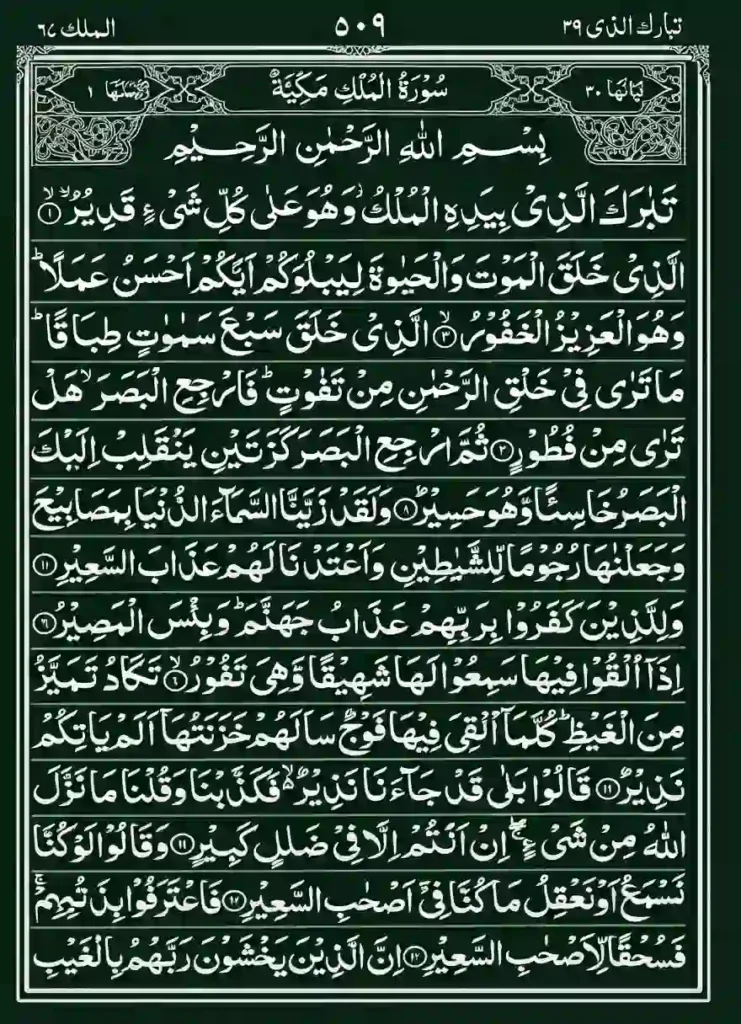 تبارك الذى ٣٩
٥٠٩
الملك ٦٧
سُوْرَةُ الْمُلْكِ مَكِّيَّةٌ
بِسْمِ اللهِ الرَّحْمٰنِ الرَّحِيْمِ
تَبٰرَكَ الَّذِىْ بِيَدِهِ الْمُلْكُ وَهُوَ عَلٰى كُلِّ شَىْءٍ قَدِيْرُ ۙ ١
الَّذِىْ خَلَقَ الْمَوْتَ وَالْحَيٰوةَ لِيَبْلُوَكُمْ اَيُّكُمْ اَحْسَنُ عَمَلًا ؕ
وَهُوَ الْعَزِيْزُ الْغَفُوْرُ ۙ ٣ الَّذِىْ خَلَقَ سَبْعَ سَمٰوٰتٍ طِبَاقًا ؕ
مَا تَرٰى فِىْ خَلْقِ الرَّحْمٰنِ مِنْ تَفٰوُتٍ ؕ فَارْجِعِ الْبَصَرَ ۙ هَلْ
تَرٰى مِنْ فُطُوْرٍ ٣ ثُمَّ ارْجِعِ الْبَصَرَ كَرَّتَيْنِ يَنْقَلِبْ اِلَيْكَ
الْبَصَرُ خَاسِئًا وَّهُوَ حَسِيْرٌ ٨ وَلَقَدْ زَيَّنَّا السَّمَآءَ الدُّنْيَا بِمَصَابِيْحَ
وَجَعَلْنٰهَا رُجُوْمًا لِّلشَّيٰطِيْنِ وَاَعْتَدْنَا لَهُمْ عَذَابَ السَّعِيْرِ ١١
وَلِلَّذِيْنَ كَفَرُوْا بِرَبِّهِمْ عَذَابُ جَهَنَّمَ ؕ وَبِئْسَ الْمَصِيْرُ
اِذَآ اُلْقُوْا فِيْهَا سَمِعُوْا لَهَا شَهِيْقًا وَّهِىَ تَفُوْرُ ۙ ٦ تَكَادُ تَمَيَّزُ
مِنَ الْغَيْظِ ؕ كُلَّمَآ اُلْقِىَ فِيْهَا فَوْجٌ سَاَلَهُمْ خَزَنَتُهَآ اَلَمْ يَاْتِكُمْ
نَذِيْرٌ قَالُوْا بَلٰى قَدْ جَآءَنَا نَذِيْرٌ ۙ فَكَذَّبْنَا وَقُلْنَا مَا نَزَّلَ
اللهُ مِنْ شَىْءٍ ۚ اِنْ اَنْتُمْ اِلَّا فِىْ ضَلٰلٍ كَبِيْرٍ ١١ وَقَالُوْا لَوْ كُنَّا
نَسْمَعُ اَوْ نَعْقِلُ مَا كُنَّا فِىْٓ اَصْحٰبِ السَّعِيْرِ ١٢ فَاعْتَرَفُوْا بِذَنْۢبِهِمْ ۚ
فَسُحْقًا لِّاَصْحٰبِ السَّعِيْرِ ١٢ اِنَّ الَّذِيْنَ يَخْشَوْنَ رَبَّهُمْ بِالْغَيْبِ